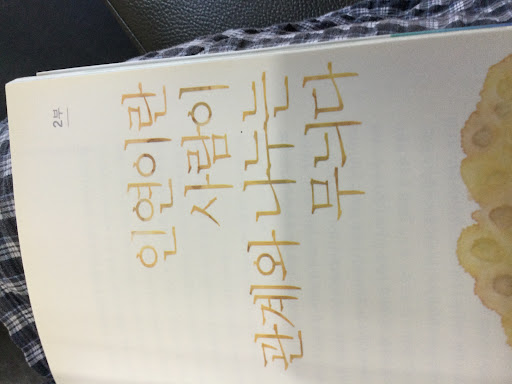 2부
인연이란
사람이
관계와 나누는
무늬다